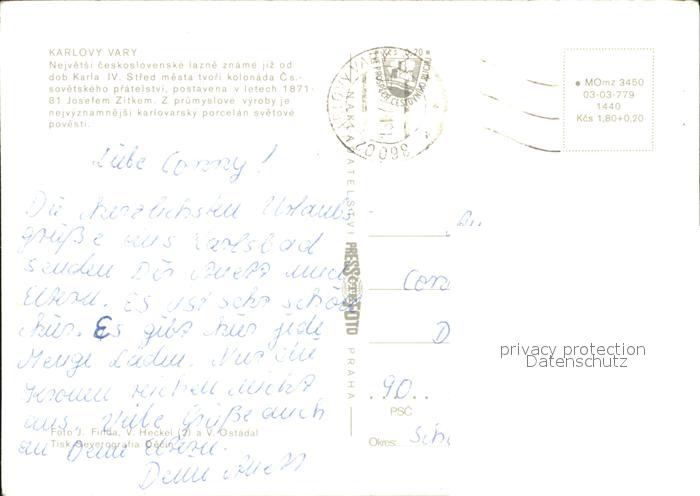 KARLOVY VARY
Největší československé lazně známé již od
dob Karla IV. Střed města tvoří kolonáda Čs.-
sovětského přátelství, postavena v letech 1871-
81 Josefem Zítkem. Z průmyslové výroby je
nejvýznamnější karlovarský porcelán světové
pověsti.
Liebe Conny!
Die herzlichsten Urlaubs
grüße aus Karlsbad
senden Dir und
Eltern. Es ist sehr schön
hier. Es gibt hier jede
Menge Läden. Nur die
Kronen reichen nicht
aus. Viele Grüße auch
an Deine Eltern.
Foto J. Finda, V. Heckel (2) a V. Ostádal
Tisk Severografia Děčín
NAKLADATELSTVÍ
PRESSFOTO
PRAHA
360 02
• MOmz 3450
03-03-779
1440
Kčs 1,80+0,20
90
PSČ
Okres:
privacy protection
Datenschutz